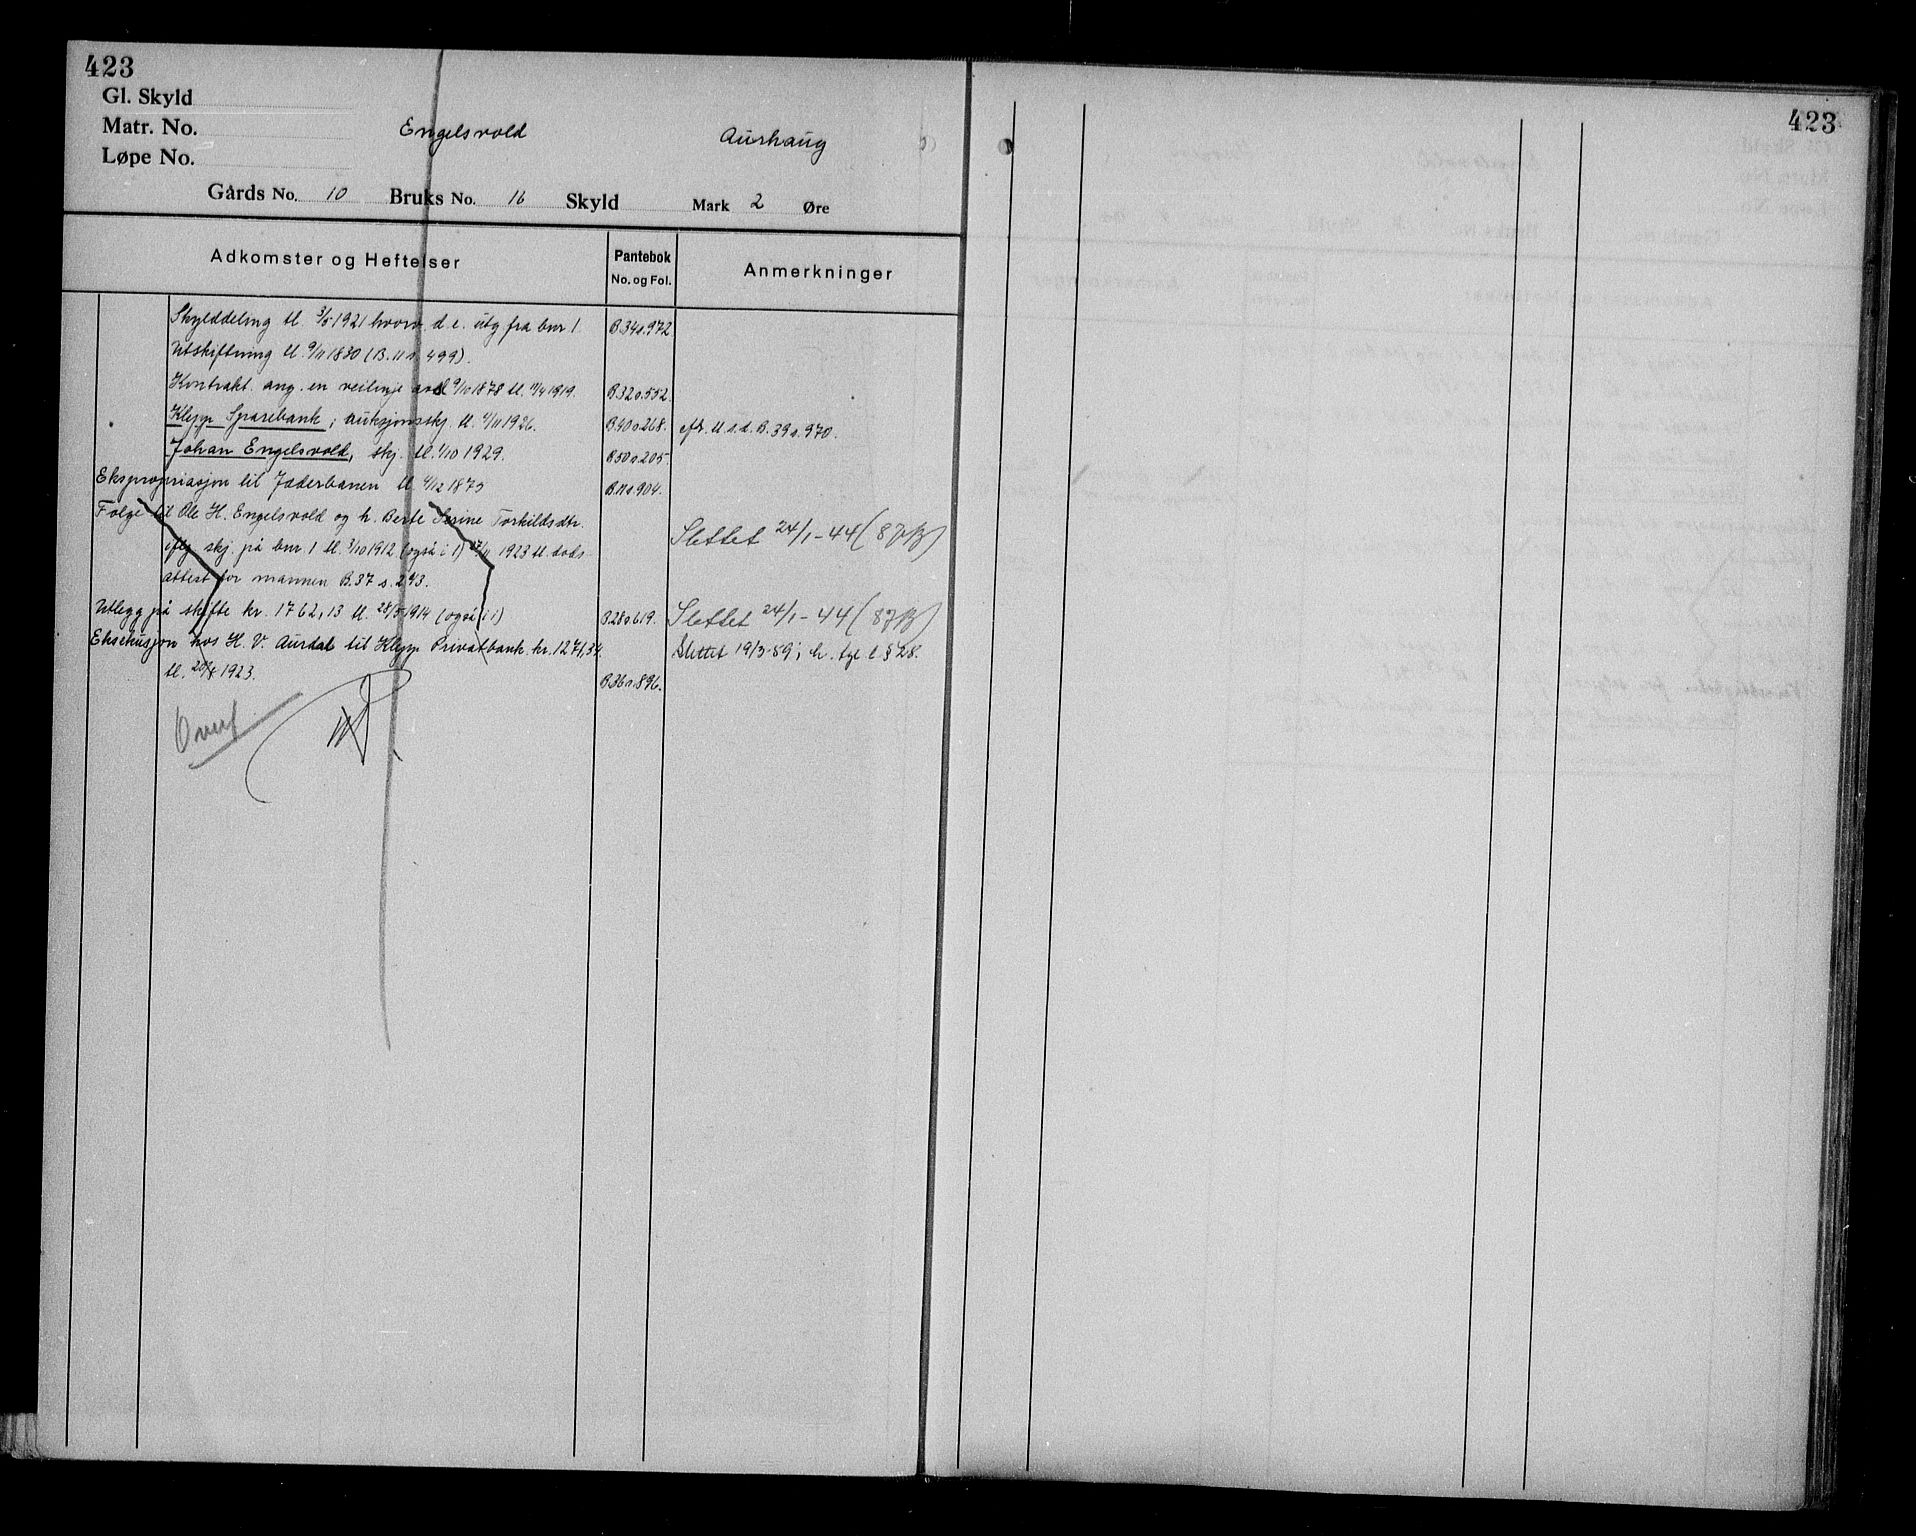 423
Gl. Skyld
Matr. No.
Løpe No.
Engelsvold Aurhaug
Gårds No. 10 Bruks No. 16 Skyld Mark 2 Øre
Adkomster og Heftelser Pantebok No. og Fol. Anmerkninger
Skylddeling tl 3/5 1921 hvorv. d. e. utg fra bnr 1. B.34 s.972
Utskiftning tl. 9/11 1830 (B. 11 s. 499).
Kontrakt ang. en veilinje avd 9/10 1878 tl. 11/4 1919. B.32 s.552.
Klepp Sparebank, auksjonsskj. tl. 4/11 1926. B.40 s.268. cfr. u.s.d. B.39 s.970.
Johan Engelsvold, skj. tl. 1/10 1929. B.50 s.205.
Ekspropriasjon til Jæderbanen tl 4/12 1875 B.11 s.904.
Følge til Ole H. Engelsvold og h. Berte Serine Torkildsdtr.
iflg skj. på bnr 1 tl. 3/10 1912 (også i 1) 27/11 1923 tl. døds- Slettet 24/1-44 (87/B)
attest for mannen B.37 s. 243.
Utlegg på skifte kr. 1762,13 tl. 28/5 1914 (også i 1) B.28 s.619. Slettet 24/1-44 (87/B)
Eksekusjon hos H. V. Aurdal til Klepp Privatbank kr. 1271,34 Slettet 19/3-59 i h. tgl. l § 28.
tl. 20/4 1923. B.36 s.896.
Overf
423